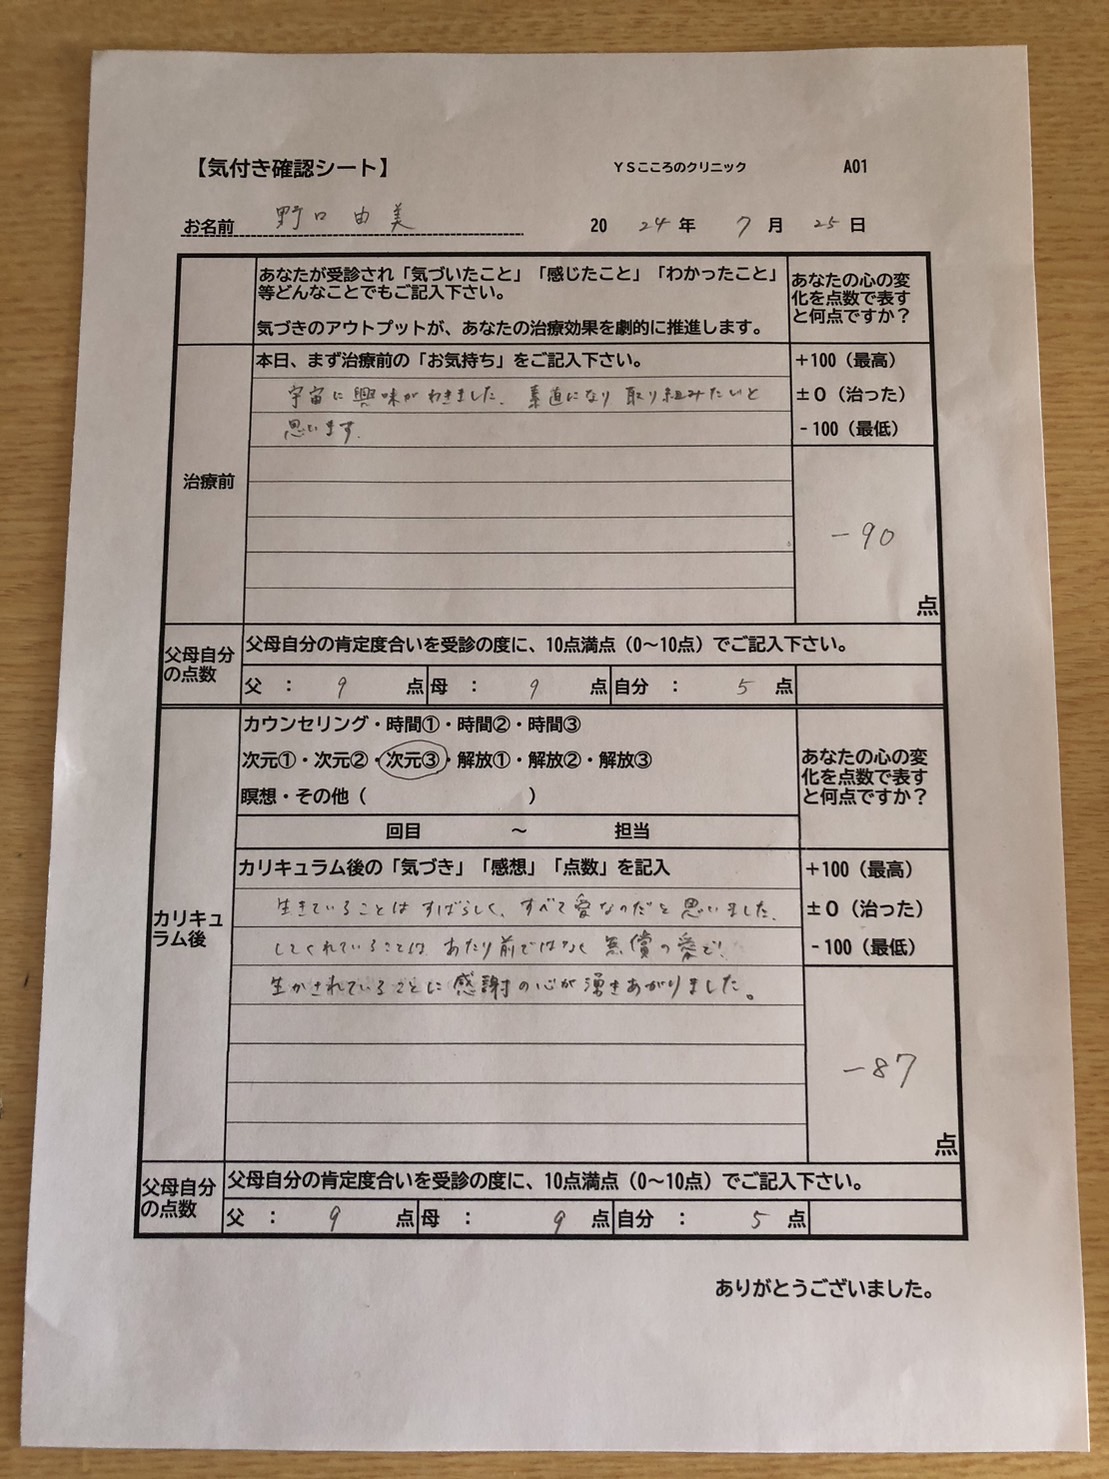 【気付き確認シート】 YSこころのクリニック A01
お名前 野口由美 2024年7月25日
あなたが受診され「気づいたこと」「感じたこと」「わかったこと」
等どんなことでもご記入下さい。
気づきのアウトプットが、あなたの治療効果を劇的に推進します。
あなたの心の変
化を点数で表す
と何点ですか？
治療前
本日、まず治療前の「お気持ち」をご記入下さい。
宇宙に興味がわきました、素直になり取り組みたいと
思います。
+100（最高）
±0（治った）
-100（最低）
-90
点
父母自分
の点数
父母自分の肯定度合いを受診の度に、10点満点（0～10点）でご記入下さい。
父 ： 9 点 母 ： 9 点 自分 ： 5 点
カウンセリング・時間①・時間②・時間③
次元①・次元②・次元③・解放①・解放②・解放③
瞑想・その他（ ）
回目 ～ 担当
あなたの心の変
化を点数で表す
と何点ですか？
カリキュ
ラム後
カリキュラム後の「気づき」「感想」「点数」を記入
生きていることはすばらしく、すべて愛なのだと思いました、
してくれていることは、あたり前ではなく無償の愛で！
生かされていることに感謝の心が湧きあがりました。
+100（最高）
±0（治った）
-100（最低）
-87
点
父母自分
の点数
父母自分の肯定度合いを受診の度に、10点満点（0～10点）でご記入下さい。
父 ： 9 点 母 ： 9 点 自分 ： 5 点
ありがとうございました。